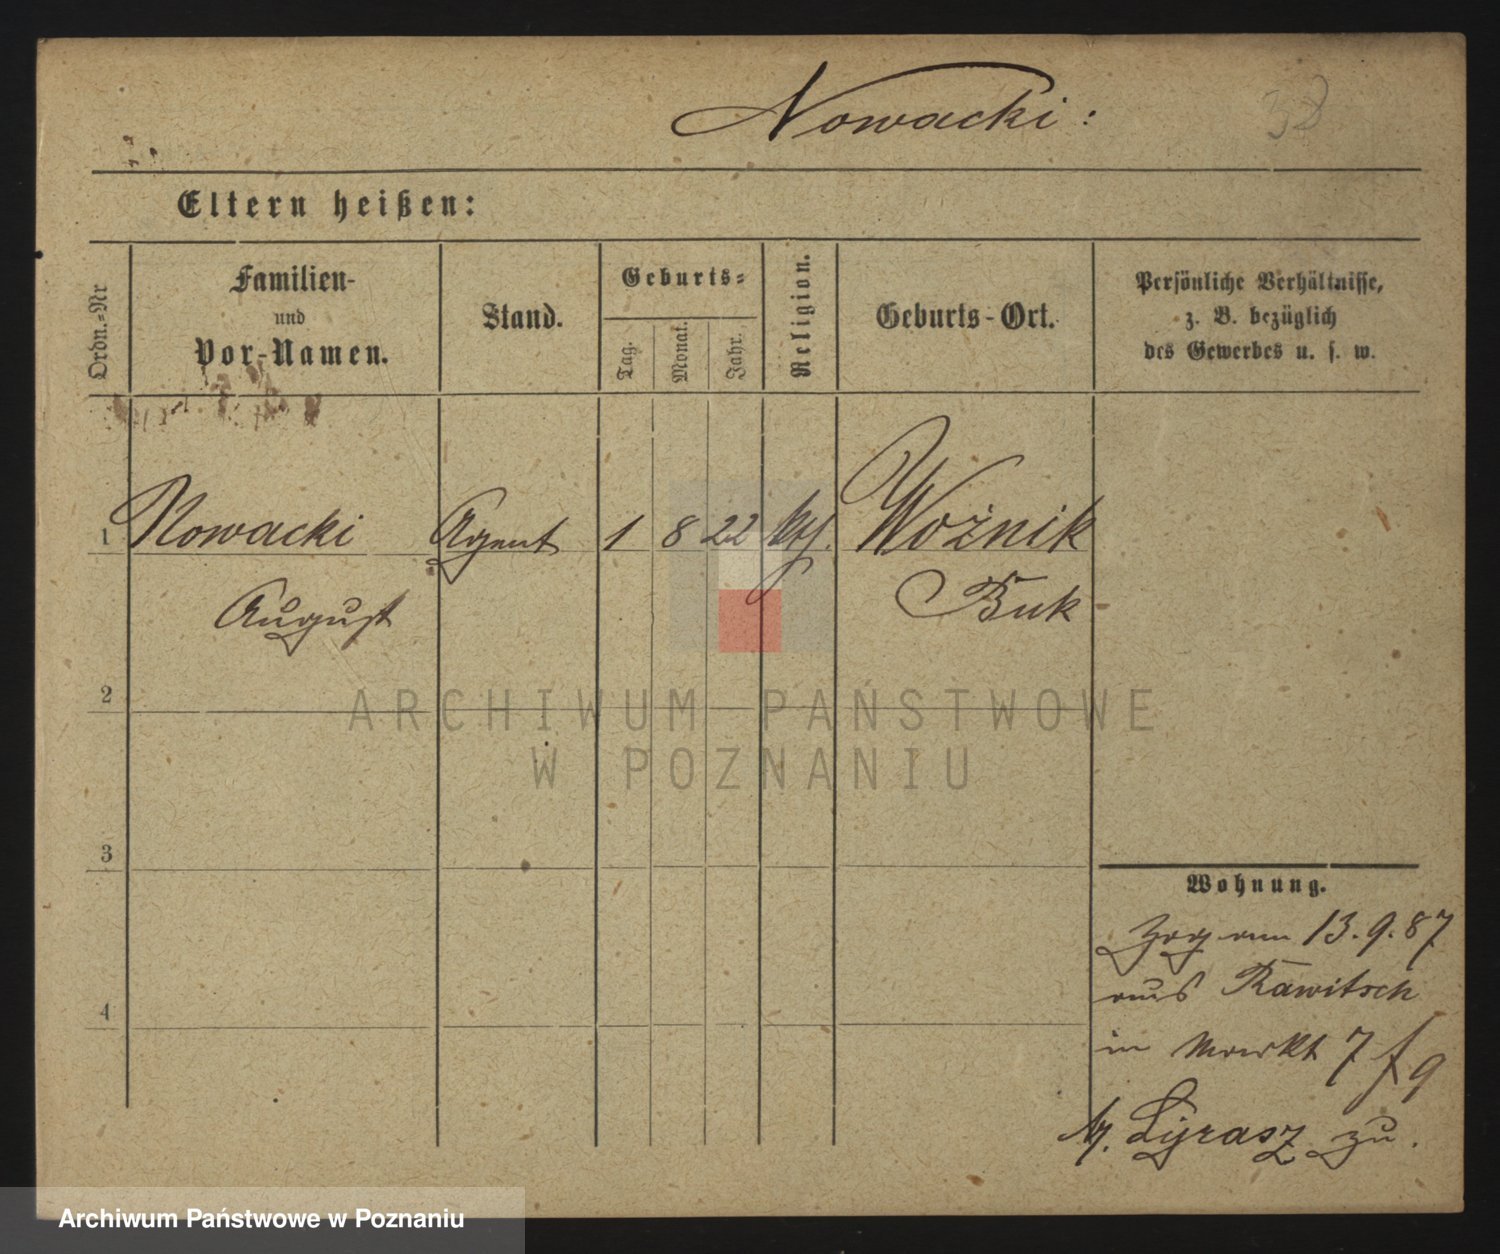 Nowacki:
38
Eltern heißen:
Ordn.-Nr
Familien-
und
Vor-Namen.
Stand.
Geburts-
Tag.
Monat.
Jahr.
Religion.
Geburts-Ort.
Persönliche Verhältnisse,
z. B. bezüglich
des Gewerbes u. s. w.
1 Nowacki Agent 1 8 22 kth. Woźnik
August Buk
2
3
4
Wohnung.
Zog am 13.9.87
aus Rawitsch
in Markt 7
Lyrasz zu.
ARCHIWUM PAŃSTWOWE
W POZNANIU
Archiwum Państwowe w Poznaniu